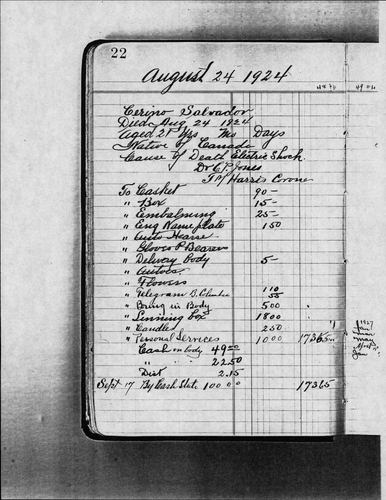 22
August 24 1924
Cerino Salvador
Died Aug 24 1924
Aged 21 Yrs Ms Days
Native of Canada
Cause of Death Electric Shock
Dr C.P. Jones
J W Harris Coroner
To Casket 90 -
" Box 15 -
" Embalming 25 -
" Eng Name plate 1 50
" Auto Hearse
" Gloves P Bearers
" Delivery Body 5 -
" Autos
" Flowers
" Telegram B. Columbia 1 10
55
" Bring in Body 5 00
" Linning Box 18 00
" Candles 2 50
" Personal Services 10 00 173 65
Cash on body 49 00
" 22.50
Dist 2.15
Sept 17 By Cash State 100 00 173 65
1927